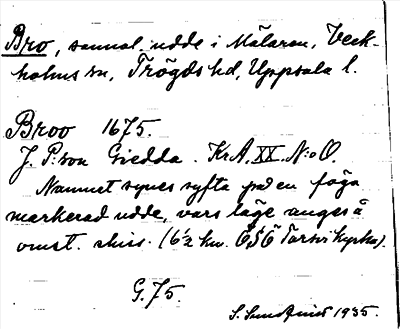 Bro, sannol. udde i Mälaren, Veck-
holms sn, Trögds hd, Uppsala l.
Broo 1675.
J. P:son Giedda. KrA, XX. N:o O.
Namnet synes syfta på en föga
markerad udde, vars läge anges å
omst. skiss. (6½ km. ÖSÖ Torsvi kyrka).
G. 75.
S. Sundquist 1935.